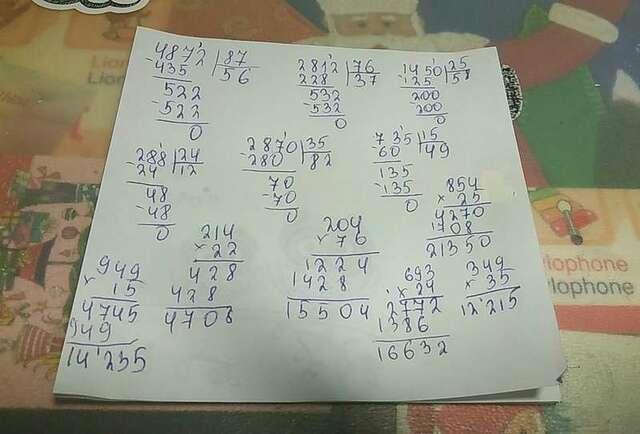 4872 87
-435 56
522
-522
0
2812 76
228 37
532
-532
0
1450 25
-125 58
200
-200
0
-288 24
24 12
48
-48
0
2870 35
-280 82
70
-70
0
735 15
-60 49
135
-135
0
854
× 25
4270
1708
21350
949
× 15
4745
949
14235
214
× 22
428
428
4708
204
× 76
1224
1428
15504
693
× 24
2772
1386
16632
349
× 35
12215
lophone
ylophone
lophone